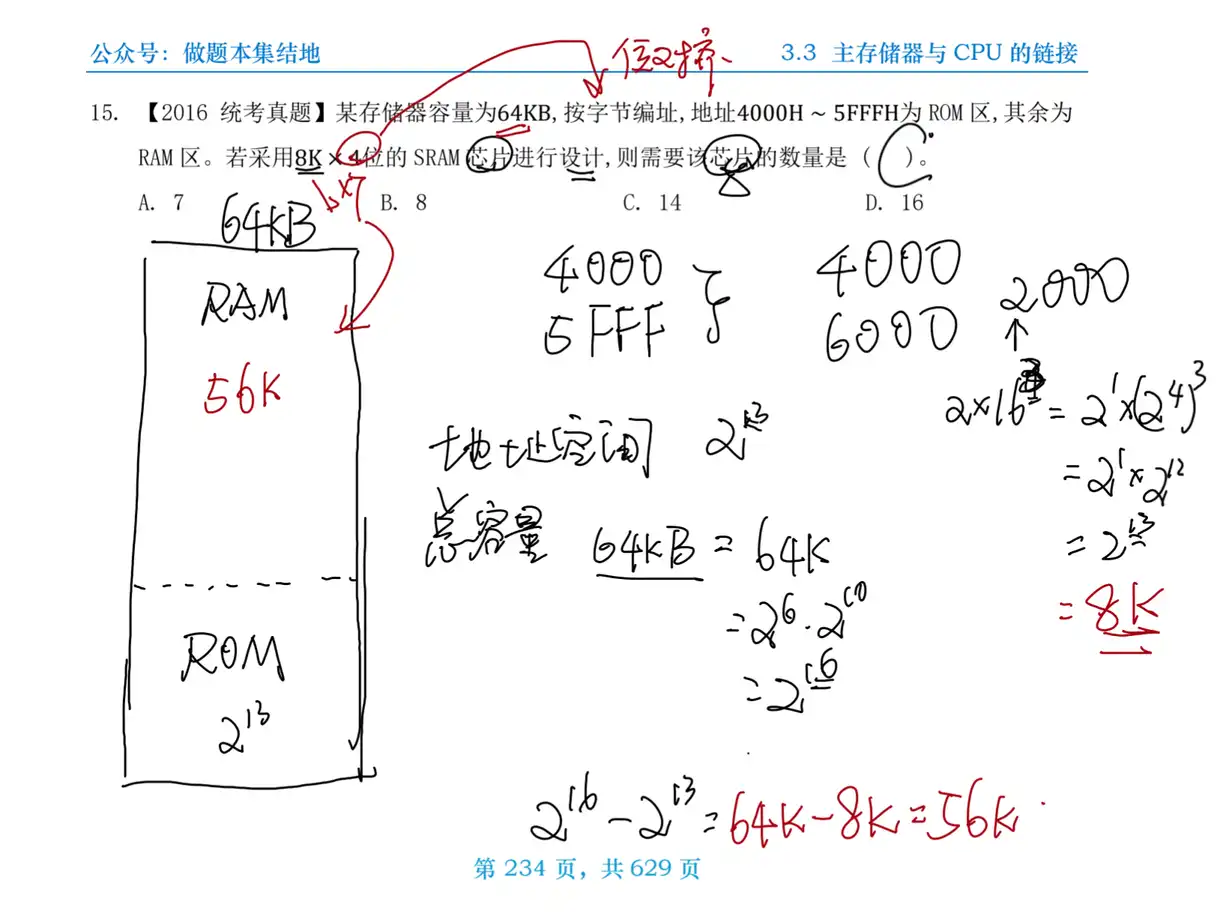 公众号：做题本集结地
3.3 主存储器与 CPU 的链接
位2擴
15. 【2016 统考真题】某存储器容量为64KB,按字节编址,地址4000H ~ 5FFFH为 ROM 区,其余为
RAM 区。若采用8K × 4位的 SRAM 芯片进行设计,则需要该芯片的数量是 ( C )。
×7
A. 7 B. 8 C. 14 D. 16
64KB
RAM
56K
ROM
2^13
4000
5FFF
4000
6000
2000
↑
2×16^3 = 2^1×(2^4)^3
= 2^1×2^12
= 2^13
= 8K
地址空间 2^13
总容量 64KB = 64K
= 2^6·2^10
= 2^16
2^16 - 2^13 = 64K - 8K = 56K
第 234 页，共 629 页